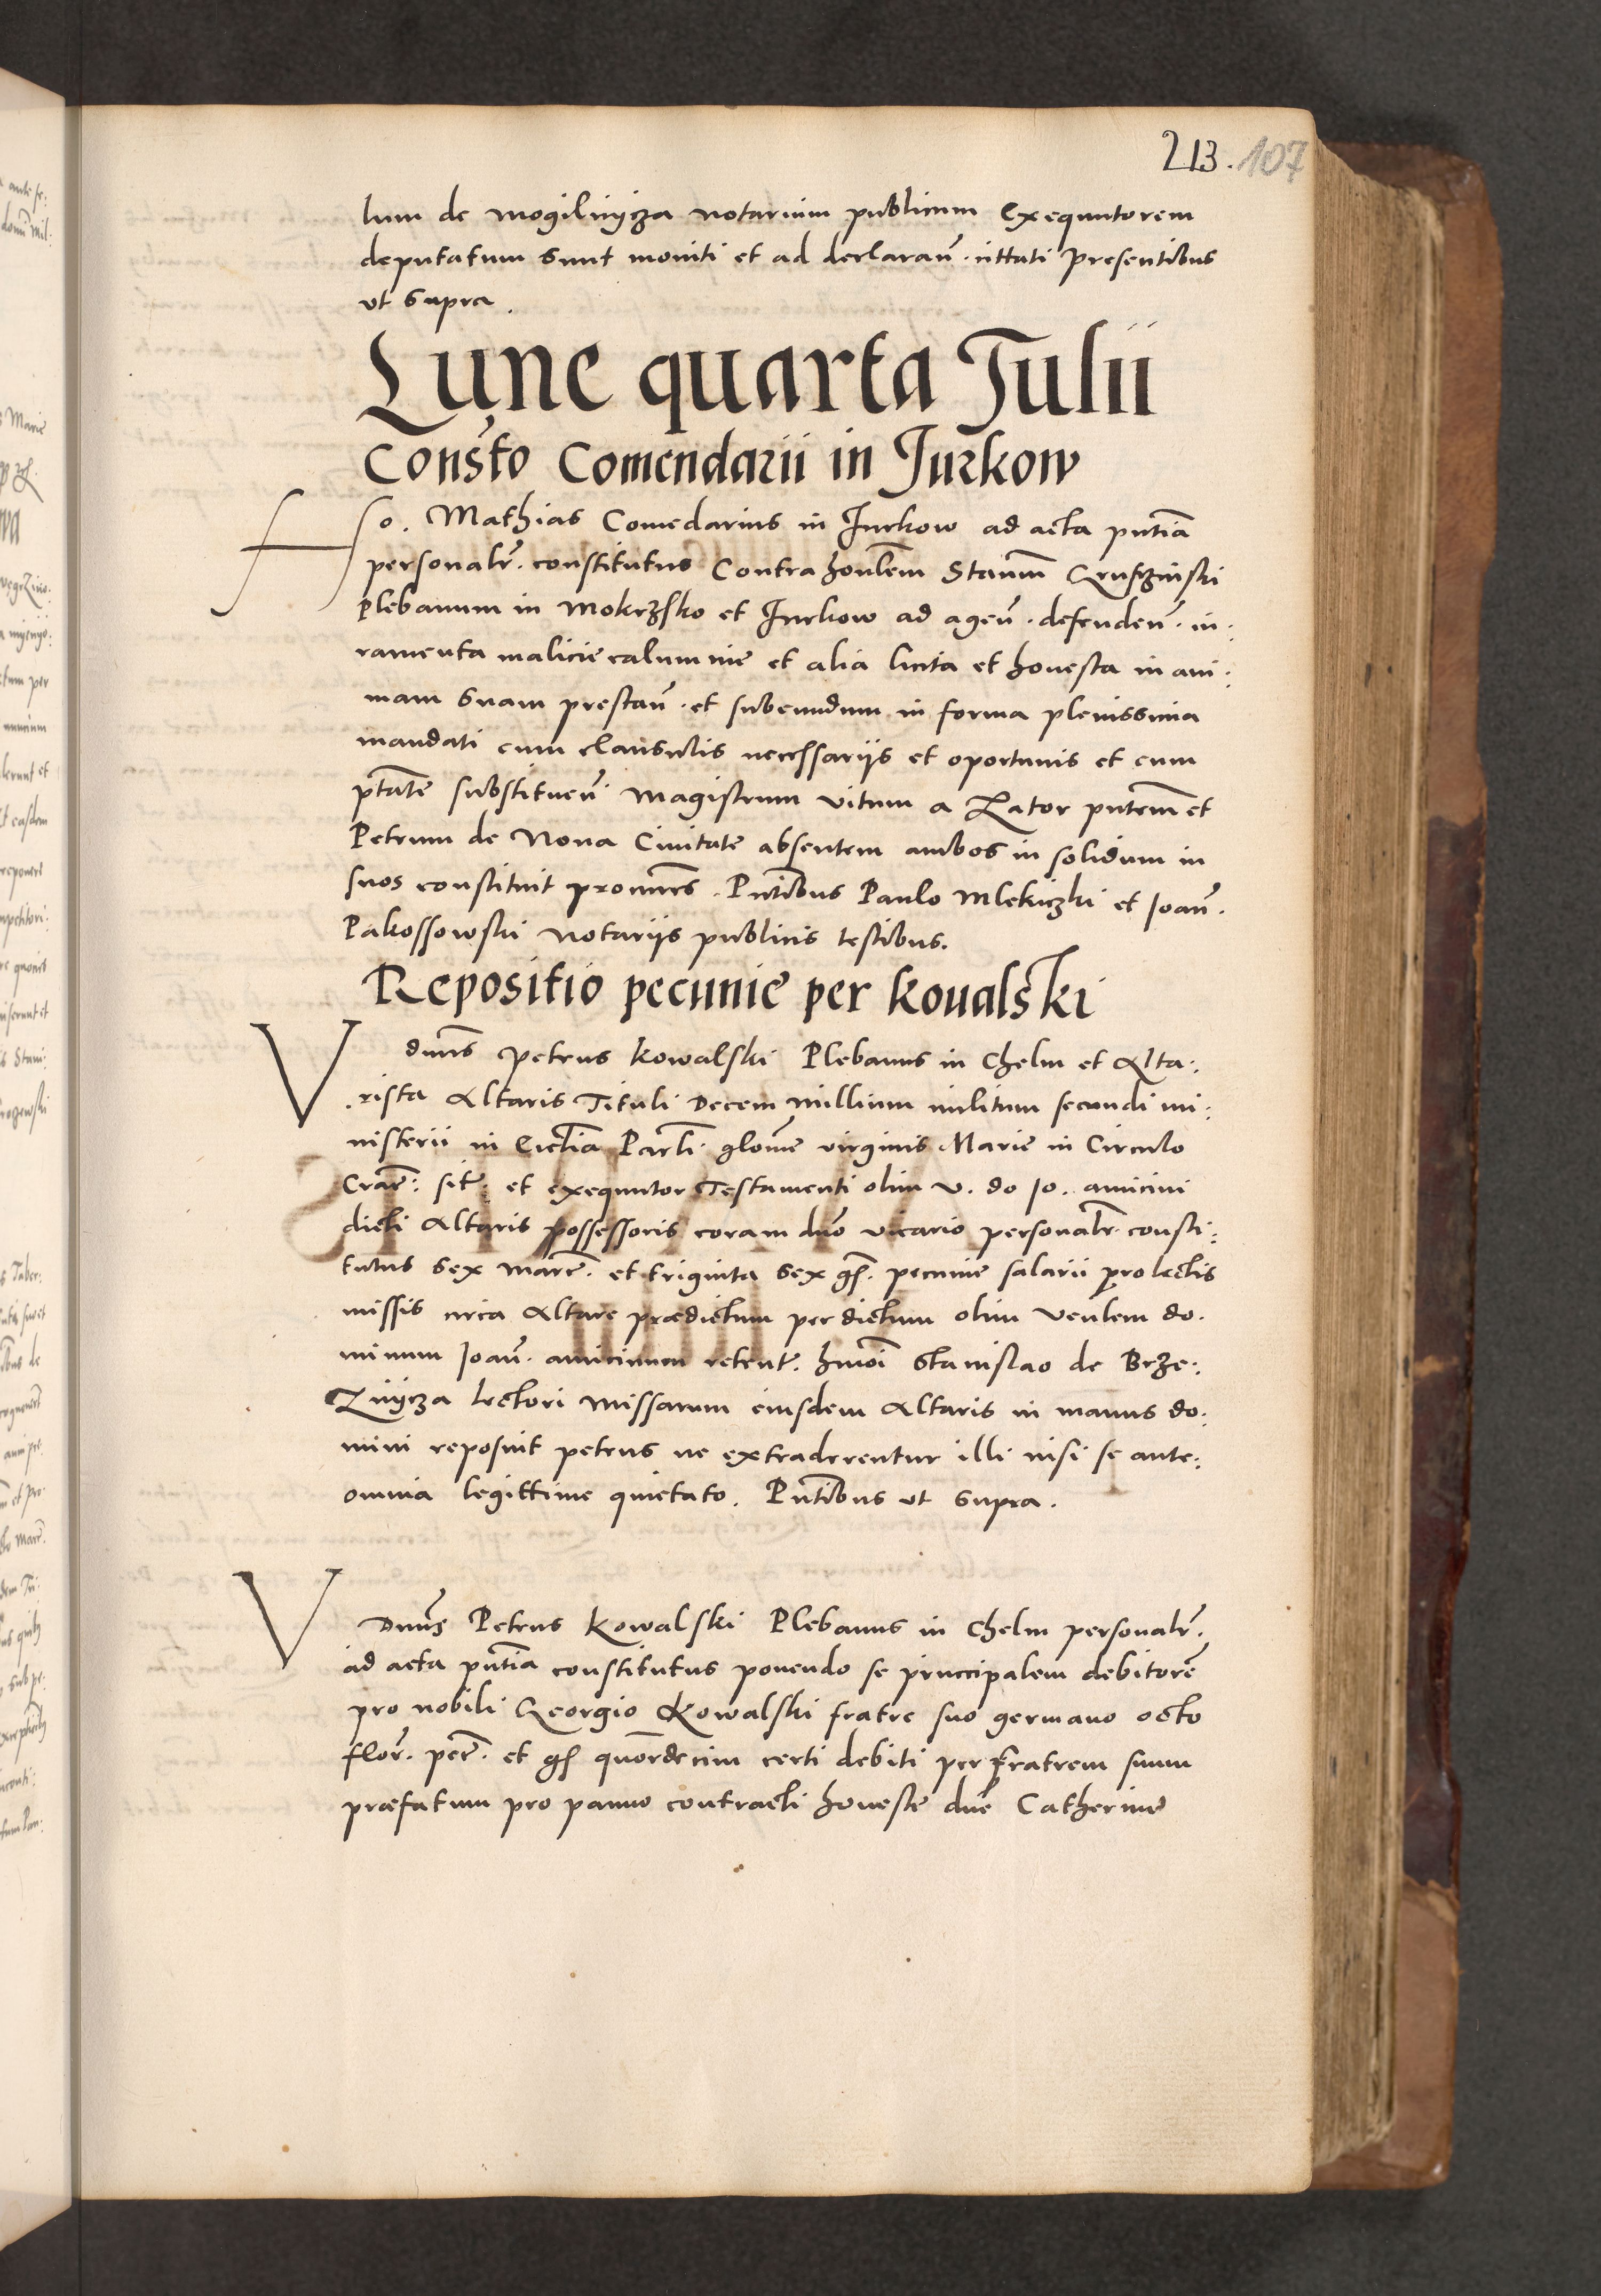 213. 107
lum de Mogilnycza notarium publicum Exequutorem
deputatum sunt moniti et ad declarañ. citati Presentibus
ut supra.
Lune quarta Julii
Consto Comendarii in Jurkow
Ho. Mathias Comedarius in Jurkow ad acta pntia
personalr. constitutus Contra honlem Stanm
Plebanum in Mokrzsko et Jurkow ad ageñ. defendeñ. iu:
ramenta malicie calumnie et alia licita et honesta in ani:
mam suam prestañ. et subeundum in forma plenissima
mandati cum clausulis necessariis et oportunis et cum
ptate substitueñ Magistrum Vitum a Zator pntem et
Petrum de Nova Civitate absentem ambos in solidum in
suos constituit procures. Pntibus Paulo Mlekiczki et Joañ.
Pakossowski Notariis publicis testibus.
Repositio pecunie per Kovalski
V dnus Petrus Kowalski Plebanus in Chelm et Alta:
rista Altaris Tituli Decem millium militum secundi mi:
nisterii in Ecctia Parli. glome virginis Marie in Circulo
Crac. sit. et exequutor Testamenti olim v. do Jo. amicini
dicti Altaris possessoris coram dno vicario personalr. consti:
tutus sex marc. et triginta sex gs. pecunie salarii pro lectis
missis circa Altare prædictum per dictum olim Venlem do.
minum Joañ. amicinum retent. hmoi Stanislao de Brze:
Znycza lectori Missarum eiusdem Altaris in manus do:
mini reposuit petrus ne extraderentur illi nisi se ante:
omnia legittime quietato. Pntibus ut supra.
V Dnus Petrus Kowalski Plebanus in Chelm personalr.
ad acta pntia constitutus ponendo se principalem debitore
pro nobili Georgio Kowalski fratre suo germano octo
flor. pec. et gs quordecim certi debiti per fratrem suum
præfatum pro panno contracti honeste dne Catherine